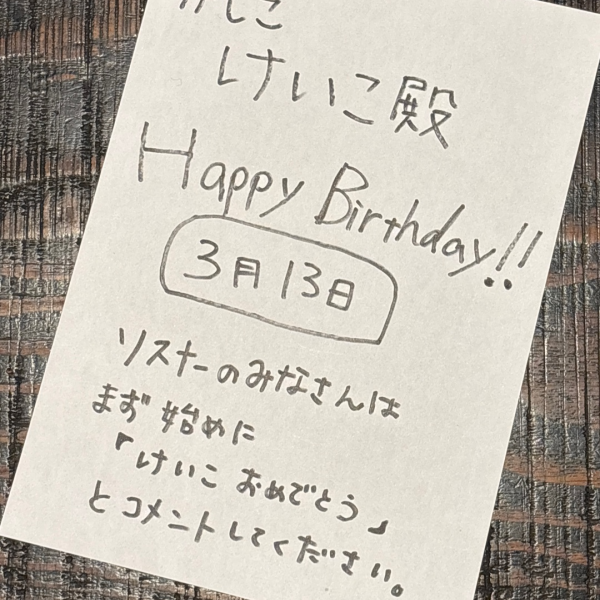 けいこ殿
Happy Birthday!!
3月13日
リスナーのみなさんは
まず始めに
「けいこ おめでとう」
とコメントしてください。